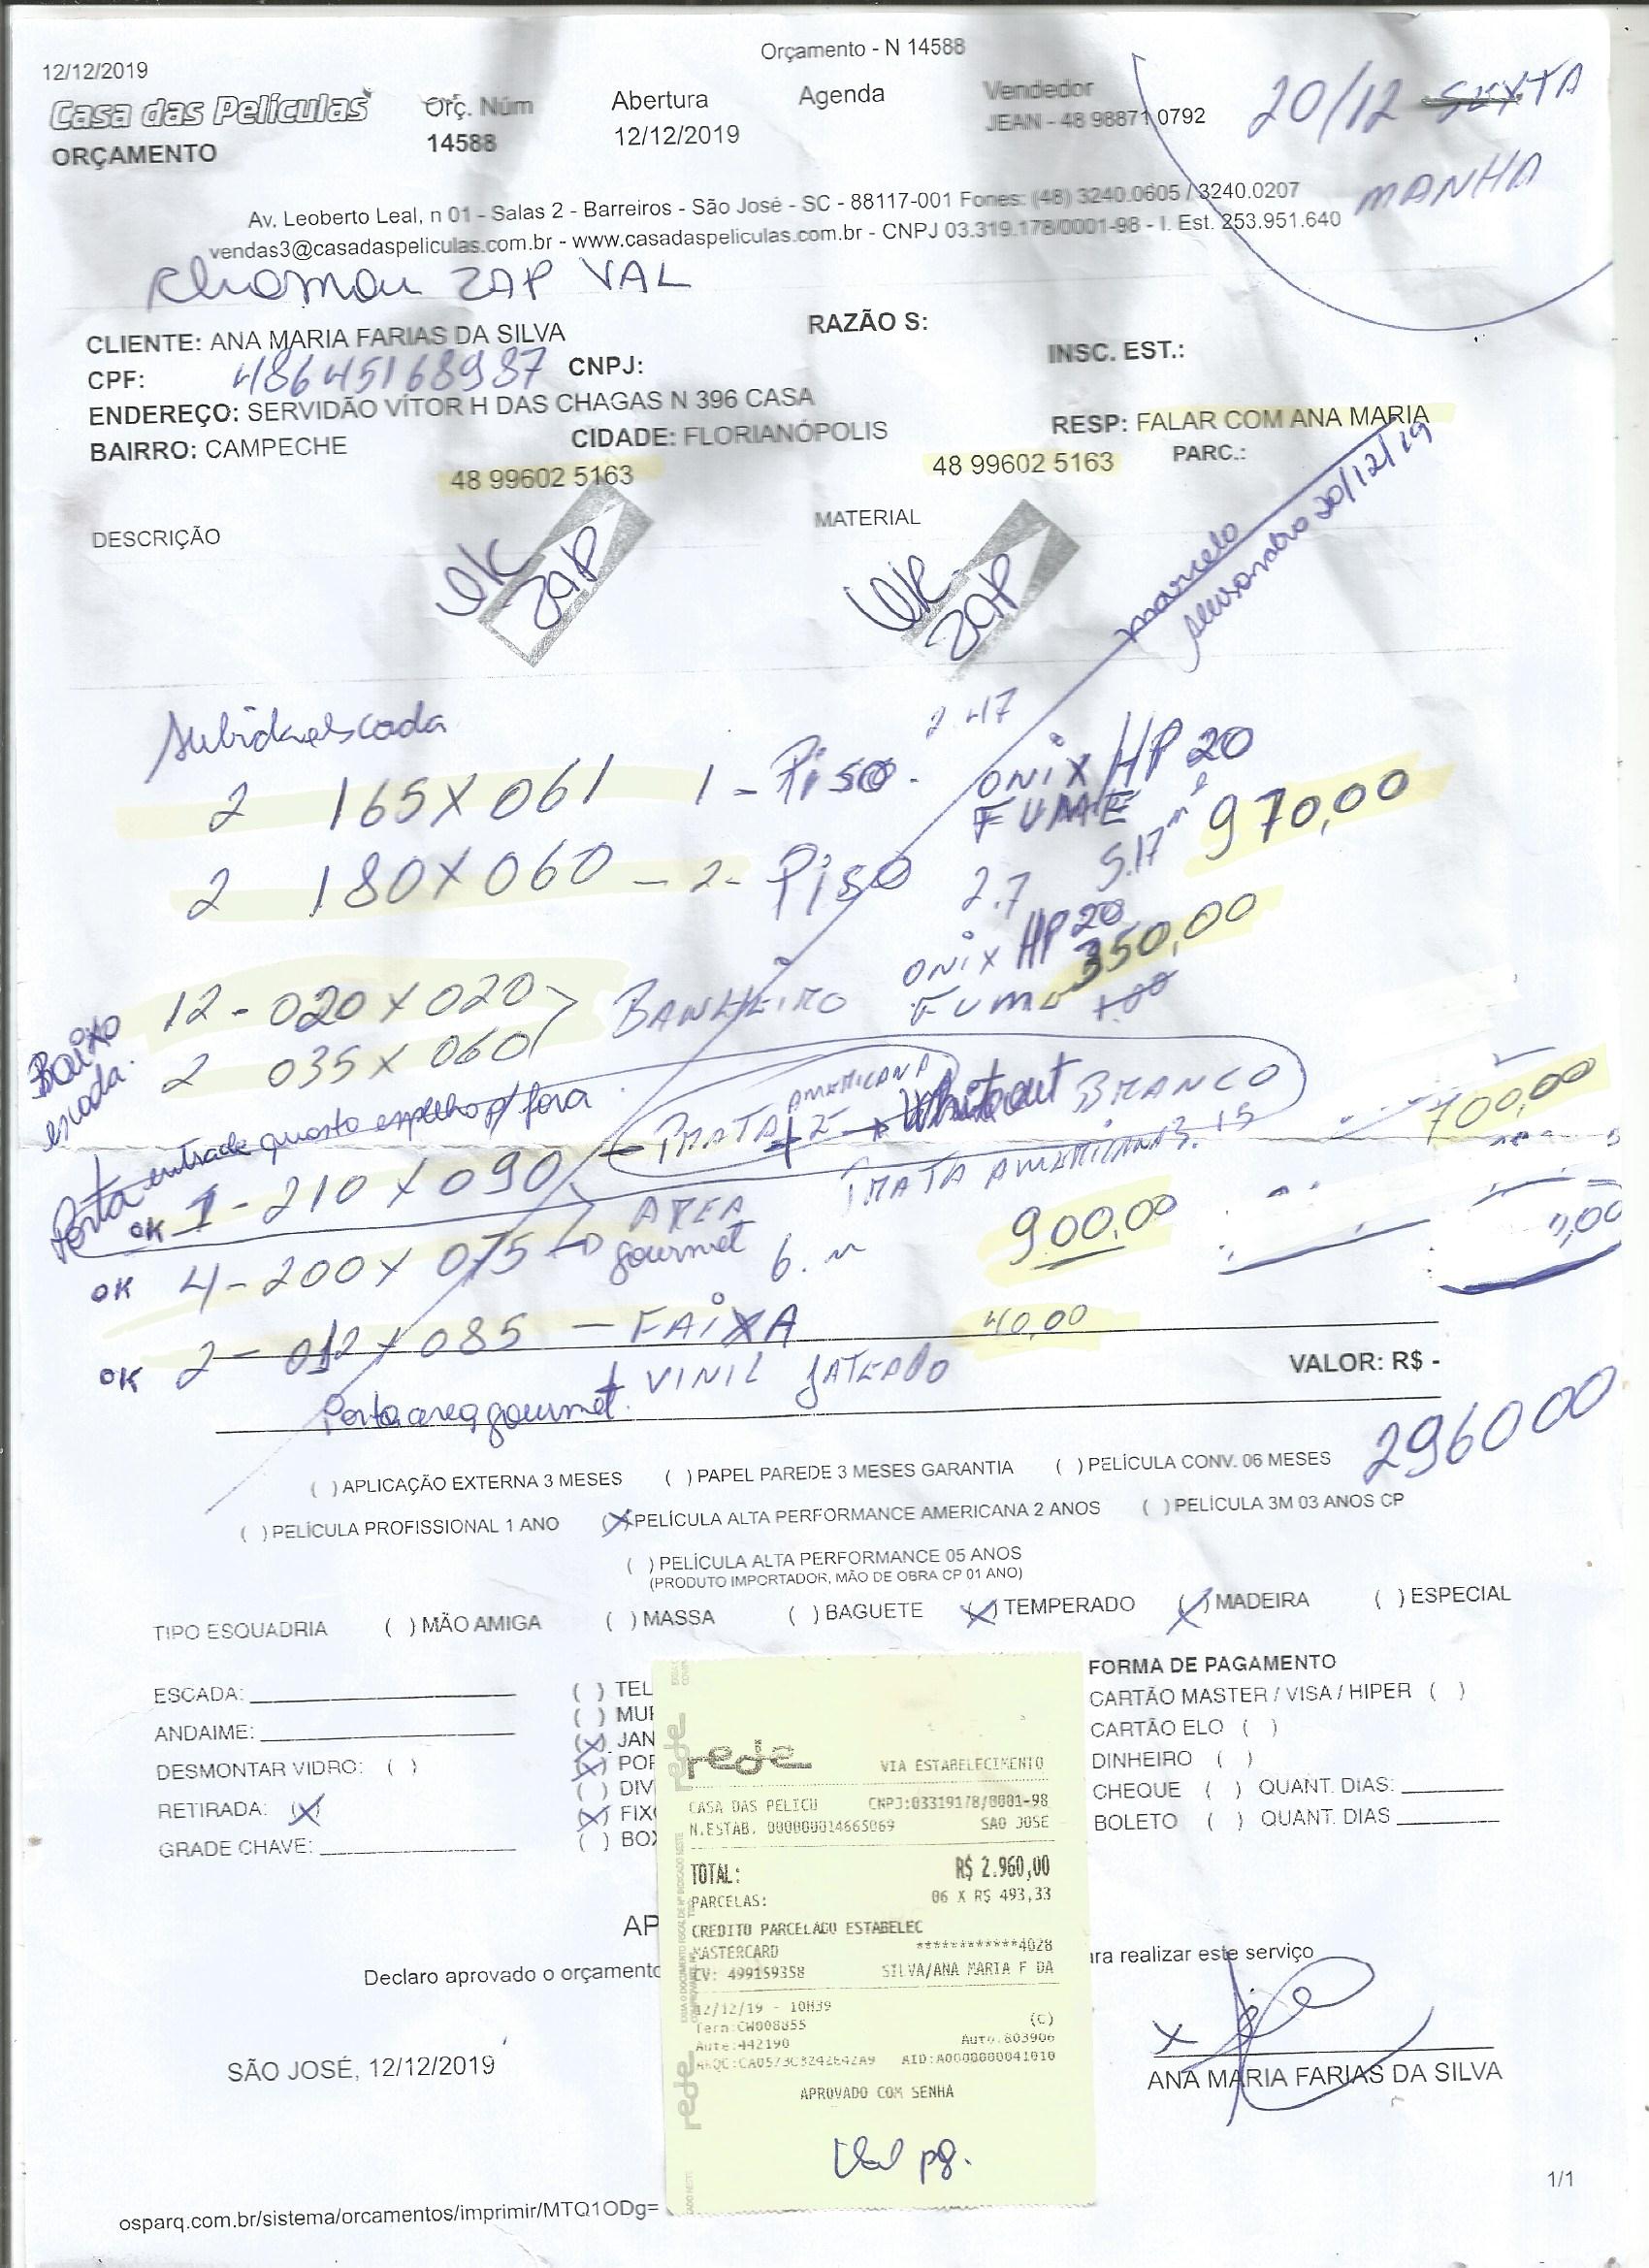 12/12/2019
Orçamento - N 14588
Casa das Películas
ORÇAMENTO
Orç. Núm
14588
Abertura
12/12/2019
Agenda
Vendedor
JEAN - 48 98871 0792
20/12 SEXTA
MANHA
Av. Leoberto Leal, n 01 - Salas 2 - Barreiros - São José - SC - 88117-001 Fones: (48) 3240.0605 / 3240.0207
vendas3@casadaspeliculas.com.br - www.casadaspeliculas.com.br - CNPJ 03.319.178/0001-98 - I. Est. 253.951.640
ZAP VAL
CLIENTE: ANA MARIA FARIAS DA SILVA
RAZÃO S:
CPF: 48645168987 CNPJ:
INSC. EST.:
ENDEREÇO: SERVIDÃO VÍTOR H DAS CHAGAS N 396 CASA
BAIRRO: CAMPECHE
CIDADE: FLORIANÓPOLIS
RESP: FALAR COM ANA MARIA
48 99602 5163
48 99602 5163
PARC.:
DESCRIÇÃO
MATERIAL
ok ZAP
ok ZAP
marcelo
20/12/19
Subida escada
2 165X061 1 - Piso
ONIX HP 20
FUME
2 180X060 - 2 - Piso 2.7 5.17 m² 970,00
Baixo escada.
12 - 020 x 020
2 035 x 060
BANHEIRO
ONIX HP 20
FUME
350,00
Porta entrada quarto espelho p/ fora
OK 1 - 210 X 090 - PRATA AMERICANA + Whiteout BRANCO
700,00
OK 4 - 200 X 075
AREA gourmet
PRATA AMERICANA
6. m
900,00
OK 2 - 012 x 085 - FAIXA
40,00
VINIL JATEADO
Porta area gourmet.
VALOR: R$ -
296000
( ) APLICAÇÃO EXTERNA 3 MESES ( ) PAPEL PAREDE 3 MESES GARANTIA ( ) PELÍCULA CONV. 06 MESES
( ) PELÍCULA PROFISSIONAL 1 ANO (X) PELÍCULA ALTA PERFORMANCE AMERICANA 2 ANOS ( ) PELÍCULA 3M 03 ANOS CP
( ) PELÍCULA ALTA PERFORMANCE 05 ANOS
(PRODUTO IMPORTADOR, MÃO DE OBRA CP 01 ANO)
TIPO ESQUADRIA ( ) MÃO AMIGA ( ) MASSA ( ) BAGUETE (X) TEMPERADO (X) MADEIRA ( ) ESPECIAL
ESCADA:
ANDAIME:
DESMONTAR VIDRO: ( )
RETIRADA: (X)
GRADE CHAVE:
( ) TEL
( ) MUR
(X) JAN
(X) POR
( ) DIV
(X) FIX
( ) BOX
FORMA DE PAGAMENTO
CARTÃO MASTER / VISA / HIPER ( )
CARTÃO ELO ( )
DINHEIRO ( )
CHEQUE ( ) QUANT. DIAS:
BOLETO ( ) QUANT. DIAS
rede
VIA ESTABELECIMENTO
CASA DAS PELICU CNPJ:03319178/0001-98
N.ESTAB. 000000014665069 SAO JOSE
TOTAL: R$ 2.960,00
PARCELAS: 06 X R$ 493,33
CREDITO PARCELADO ESTABELEC
MASTERCARD ************4028
CV: 499159358 SILVA/ANA MARIA F DA
12/12/19 - 10H39 (C)
Term:CW008855
Aute:442190 Auto:803906
AID:A0000000041010
APROVADO COM SENHA
Val pg.
AP
Declaro aprovado o orçamento
ara realizar este serviço
SÃO JOSÉ, 12/12/2019
X
ANA MARIA FARIAS DA SILVA
1/1
osparq.com.br/sistema/orcamentos/imprimir/MTQ1ODg=